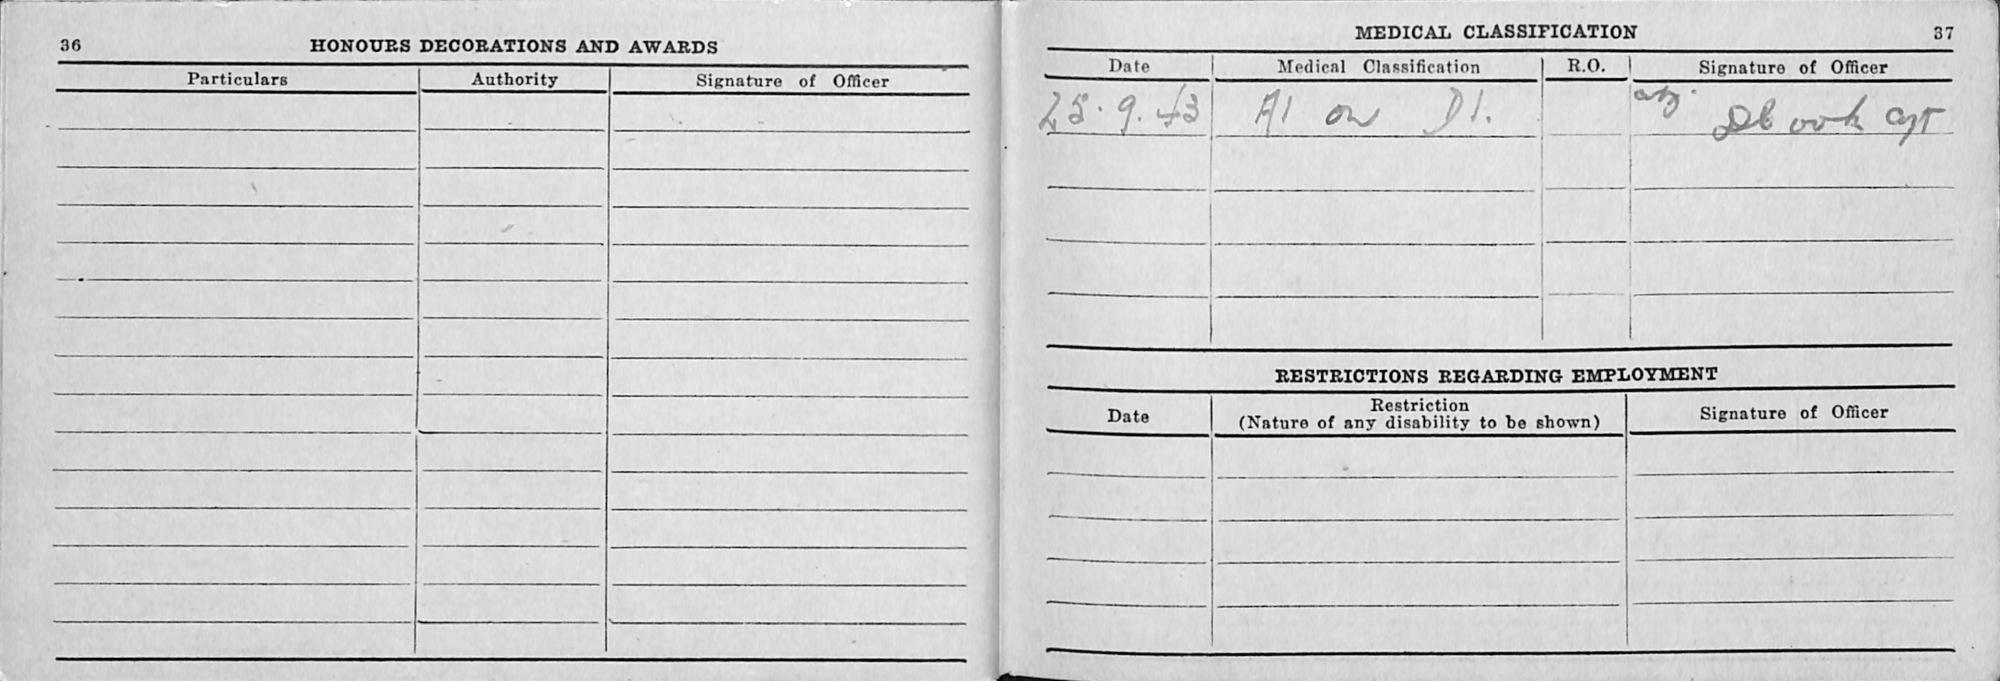 36
HONOURS DECORATIONS AND AWARDS
Particulars Authority Signature of Officer
MEDICAL CLASSIFICATION 37
Date Medical Classification R.O. Signature of Officer
25.9.43 A1 on D1.
RESTRICTIONS REGARDING EMPLOYMENT
Date Restriction Signature of Officer
(Nature of any disability to be shown)